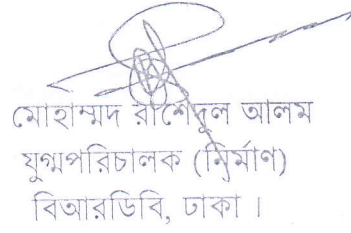 মোহাম্মদ রাশেদুল আলম
যুগ্মপরিচালক (নির্মাণ)
বিআরডিবি, ঢাকা ।